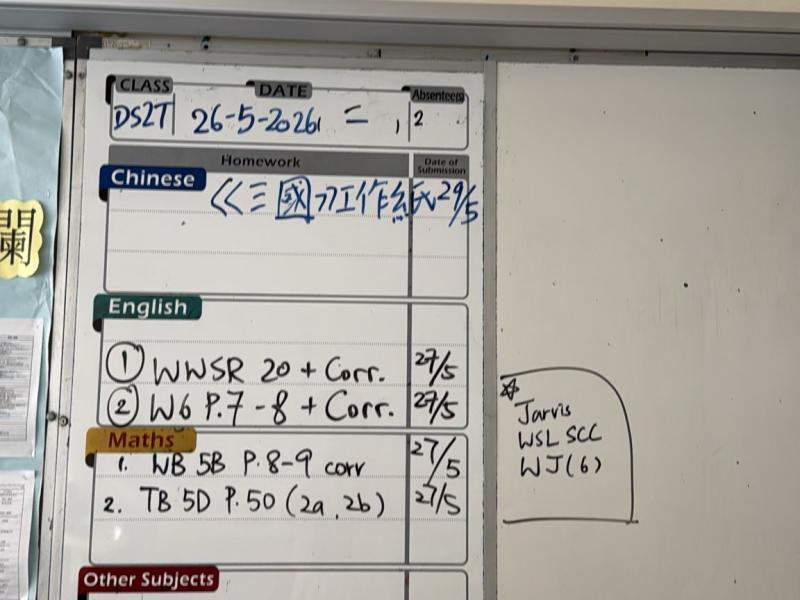 CLASS DATE Absentee(s)
DS2T 26-5-2026 二 , 2
Homework Date of Submission
Chinese
《三國》工作紙 29/5
English
① WWSR 20 + Corr. 27/5
② W6 P.7-8 + Corr. 27/5
Maths
1. WB 5B P.8-9 corr 27/5
2. TB 5D P.50 (2a, 2b) 27/5
Other Subjects
Jarvis
WSL SCC
WJ(6)